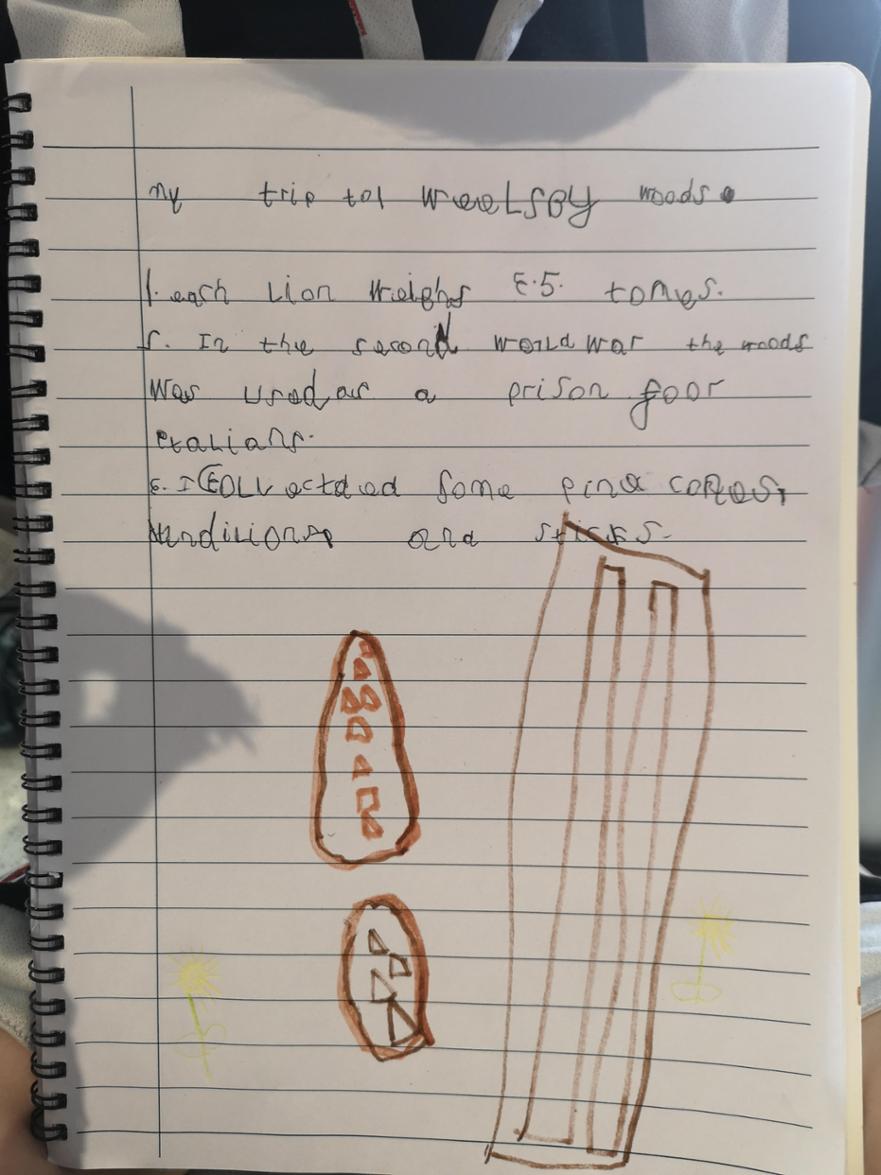 my trip to1 weelsby woods.
1. each Lion weighs 2.5. tones.
2. In the second world war the woods
was used as a prison foor
etalians.
3. I COLLectded some pine cones,
dandilions and sticks.